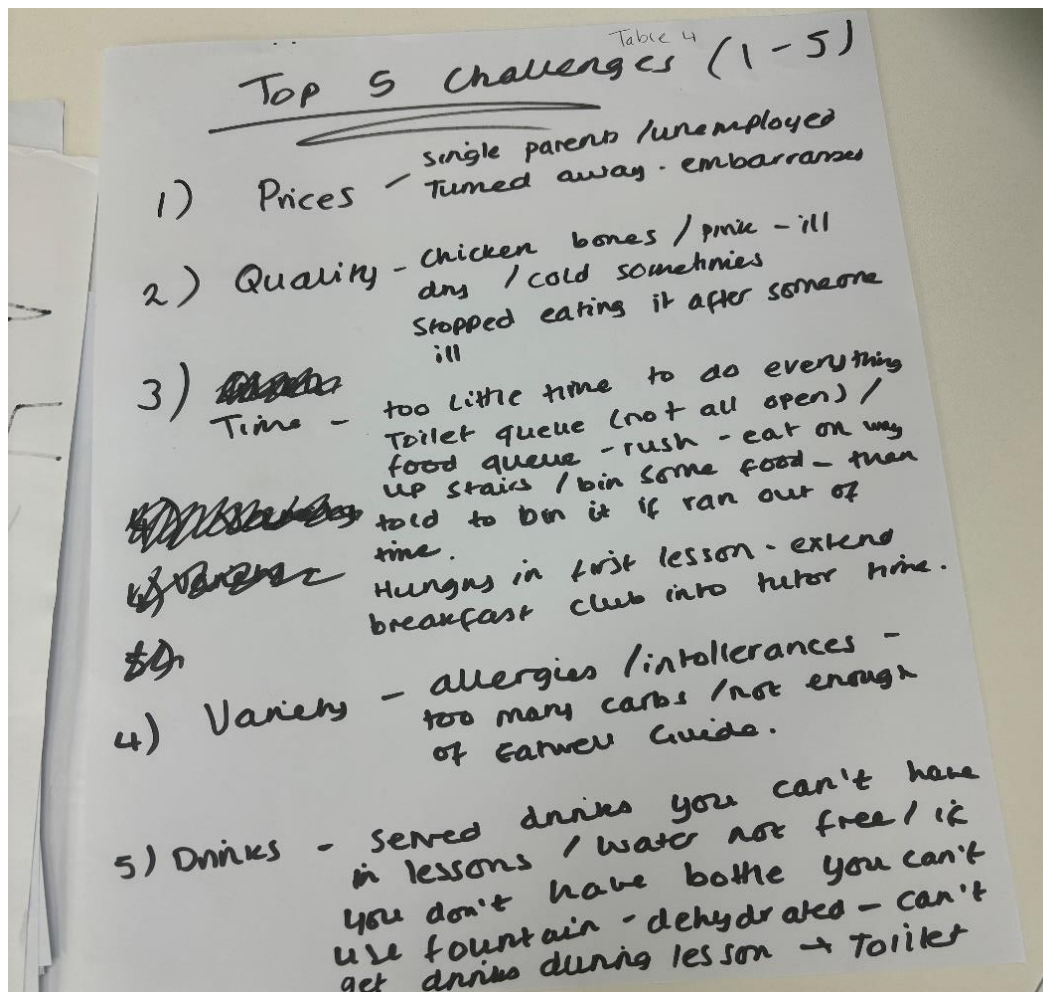 Table 4
Top 5 Challenges (1-5)
1) Prices - single parents / unemployed
Turned away - embarrasses
2) Quality - chicken bones / pink - ill
dry / cold sometimes
Stopped eating it after someone
ill
3)
Time - too little time to do everything
Toilet queue (not all open) /
food queue - rush - eat on way
up stairs / bin some food - then
told to bin it if ran out of
time.
4) Variety -
Hungry in first lesson - extend
breakfast club into tutor time.
4) Variety - allergies / intollerances -
too many carbs / not enough
of Eatwell Guide.
5) Drinks - Served drinks you can't have
in lessons / water not free / if
you don't have bottle you can't
use fountain - dehydrated - can't
get drinks during lesson → Toilet